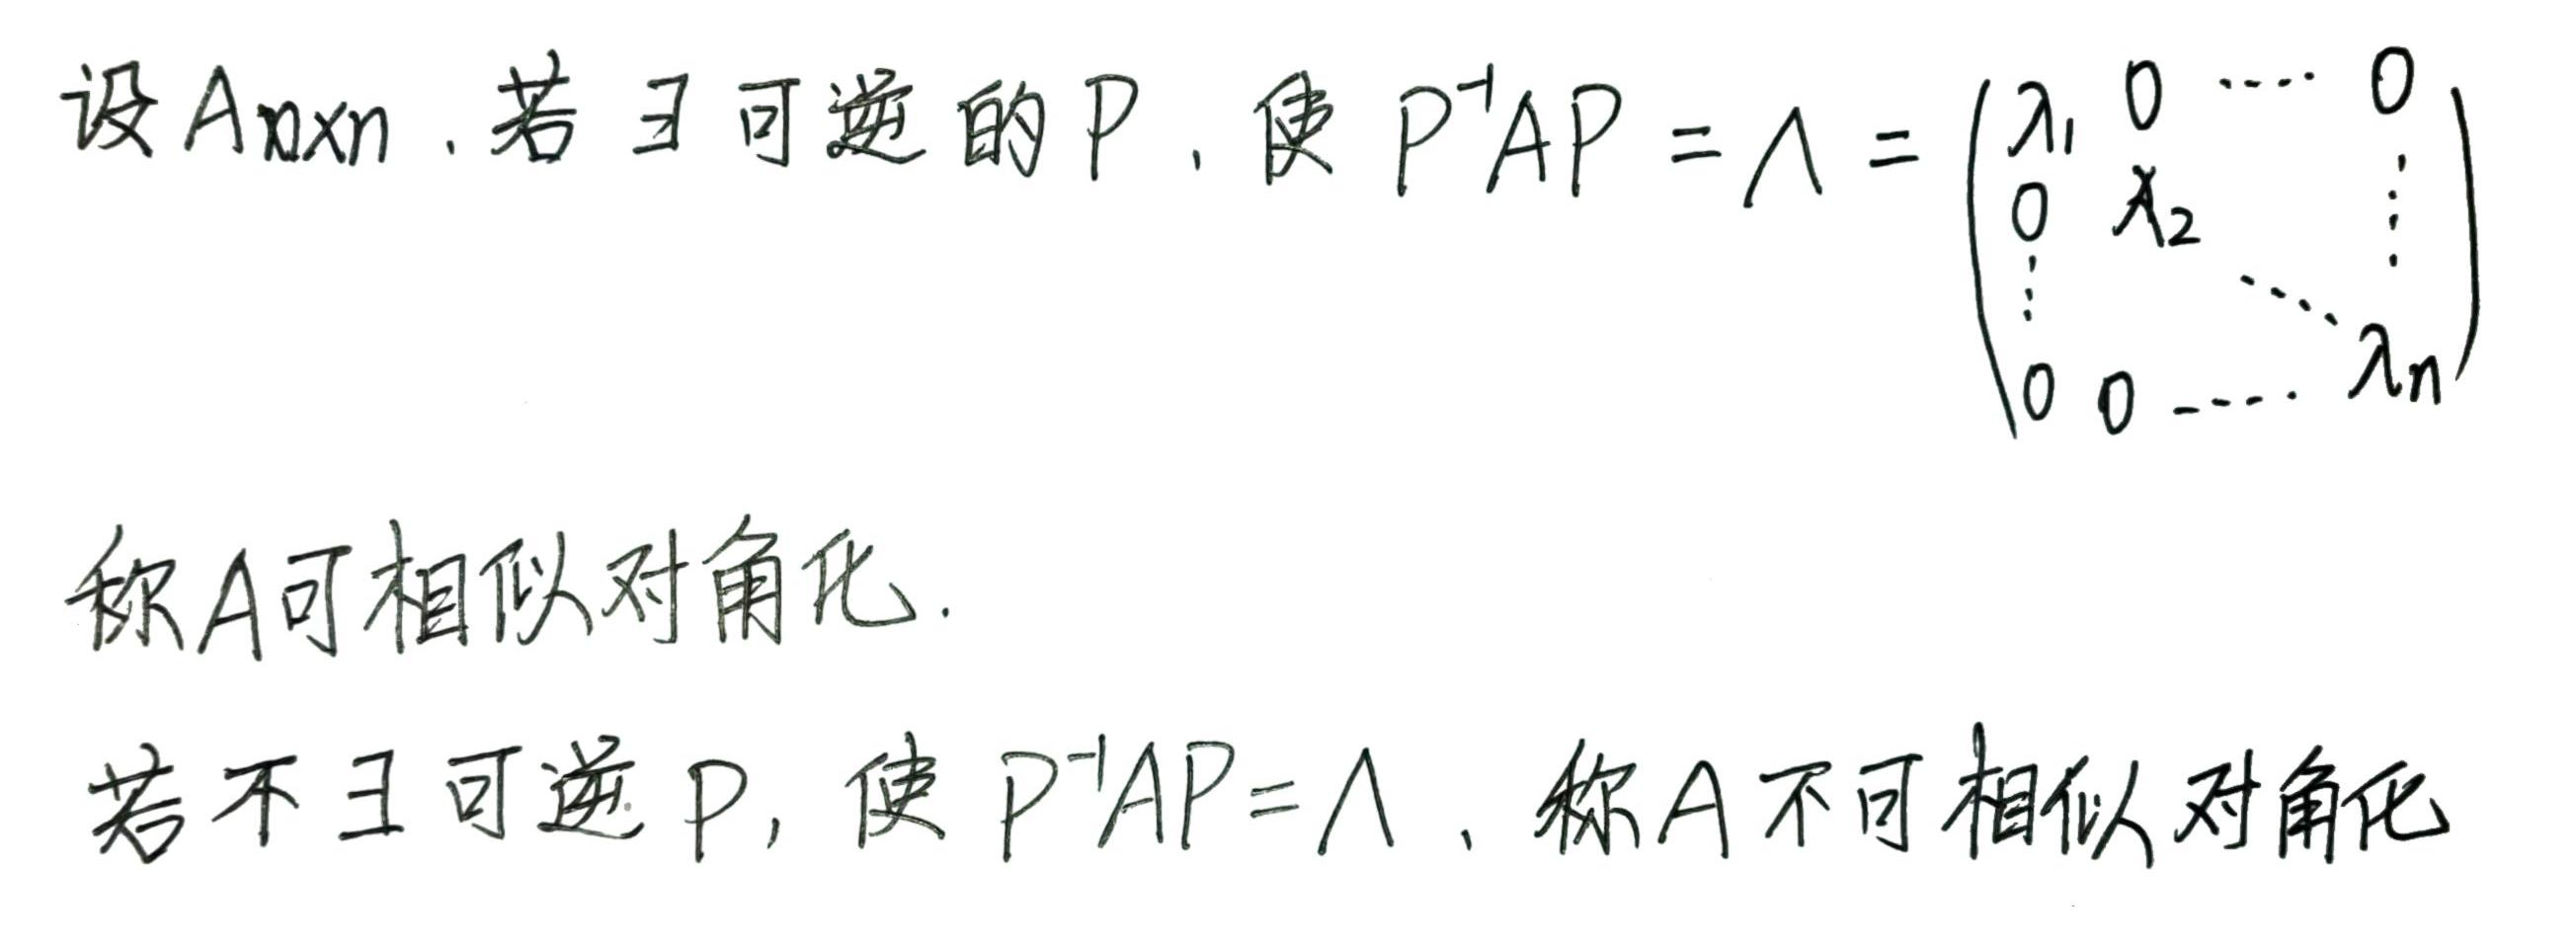 设 $A_{n×n}$ . 若 ∃ 可逆的 P , 使 $P^{-1}AP = Λ = \begin{pmatrix} λ_1 & 0 & \cdots & 0 \\ 0 & λ_2 & & \vdots \\ \vdots & & \ddots & \\ 0 & 0 & \cdots & λ_n \end{pmatrix}$
称A可相似对角化.
若不∃可逆P, 使 $P^{-1}AP=Λ$ 、称A不可相似对角化